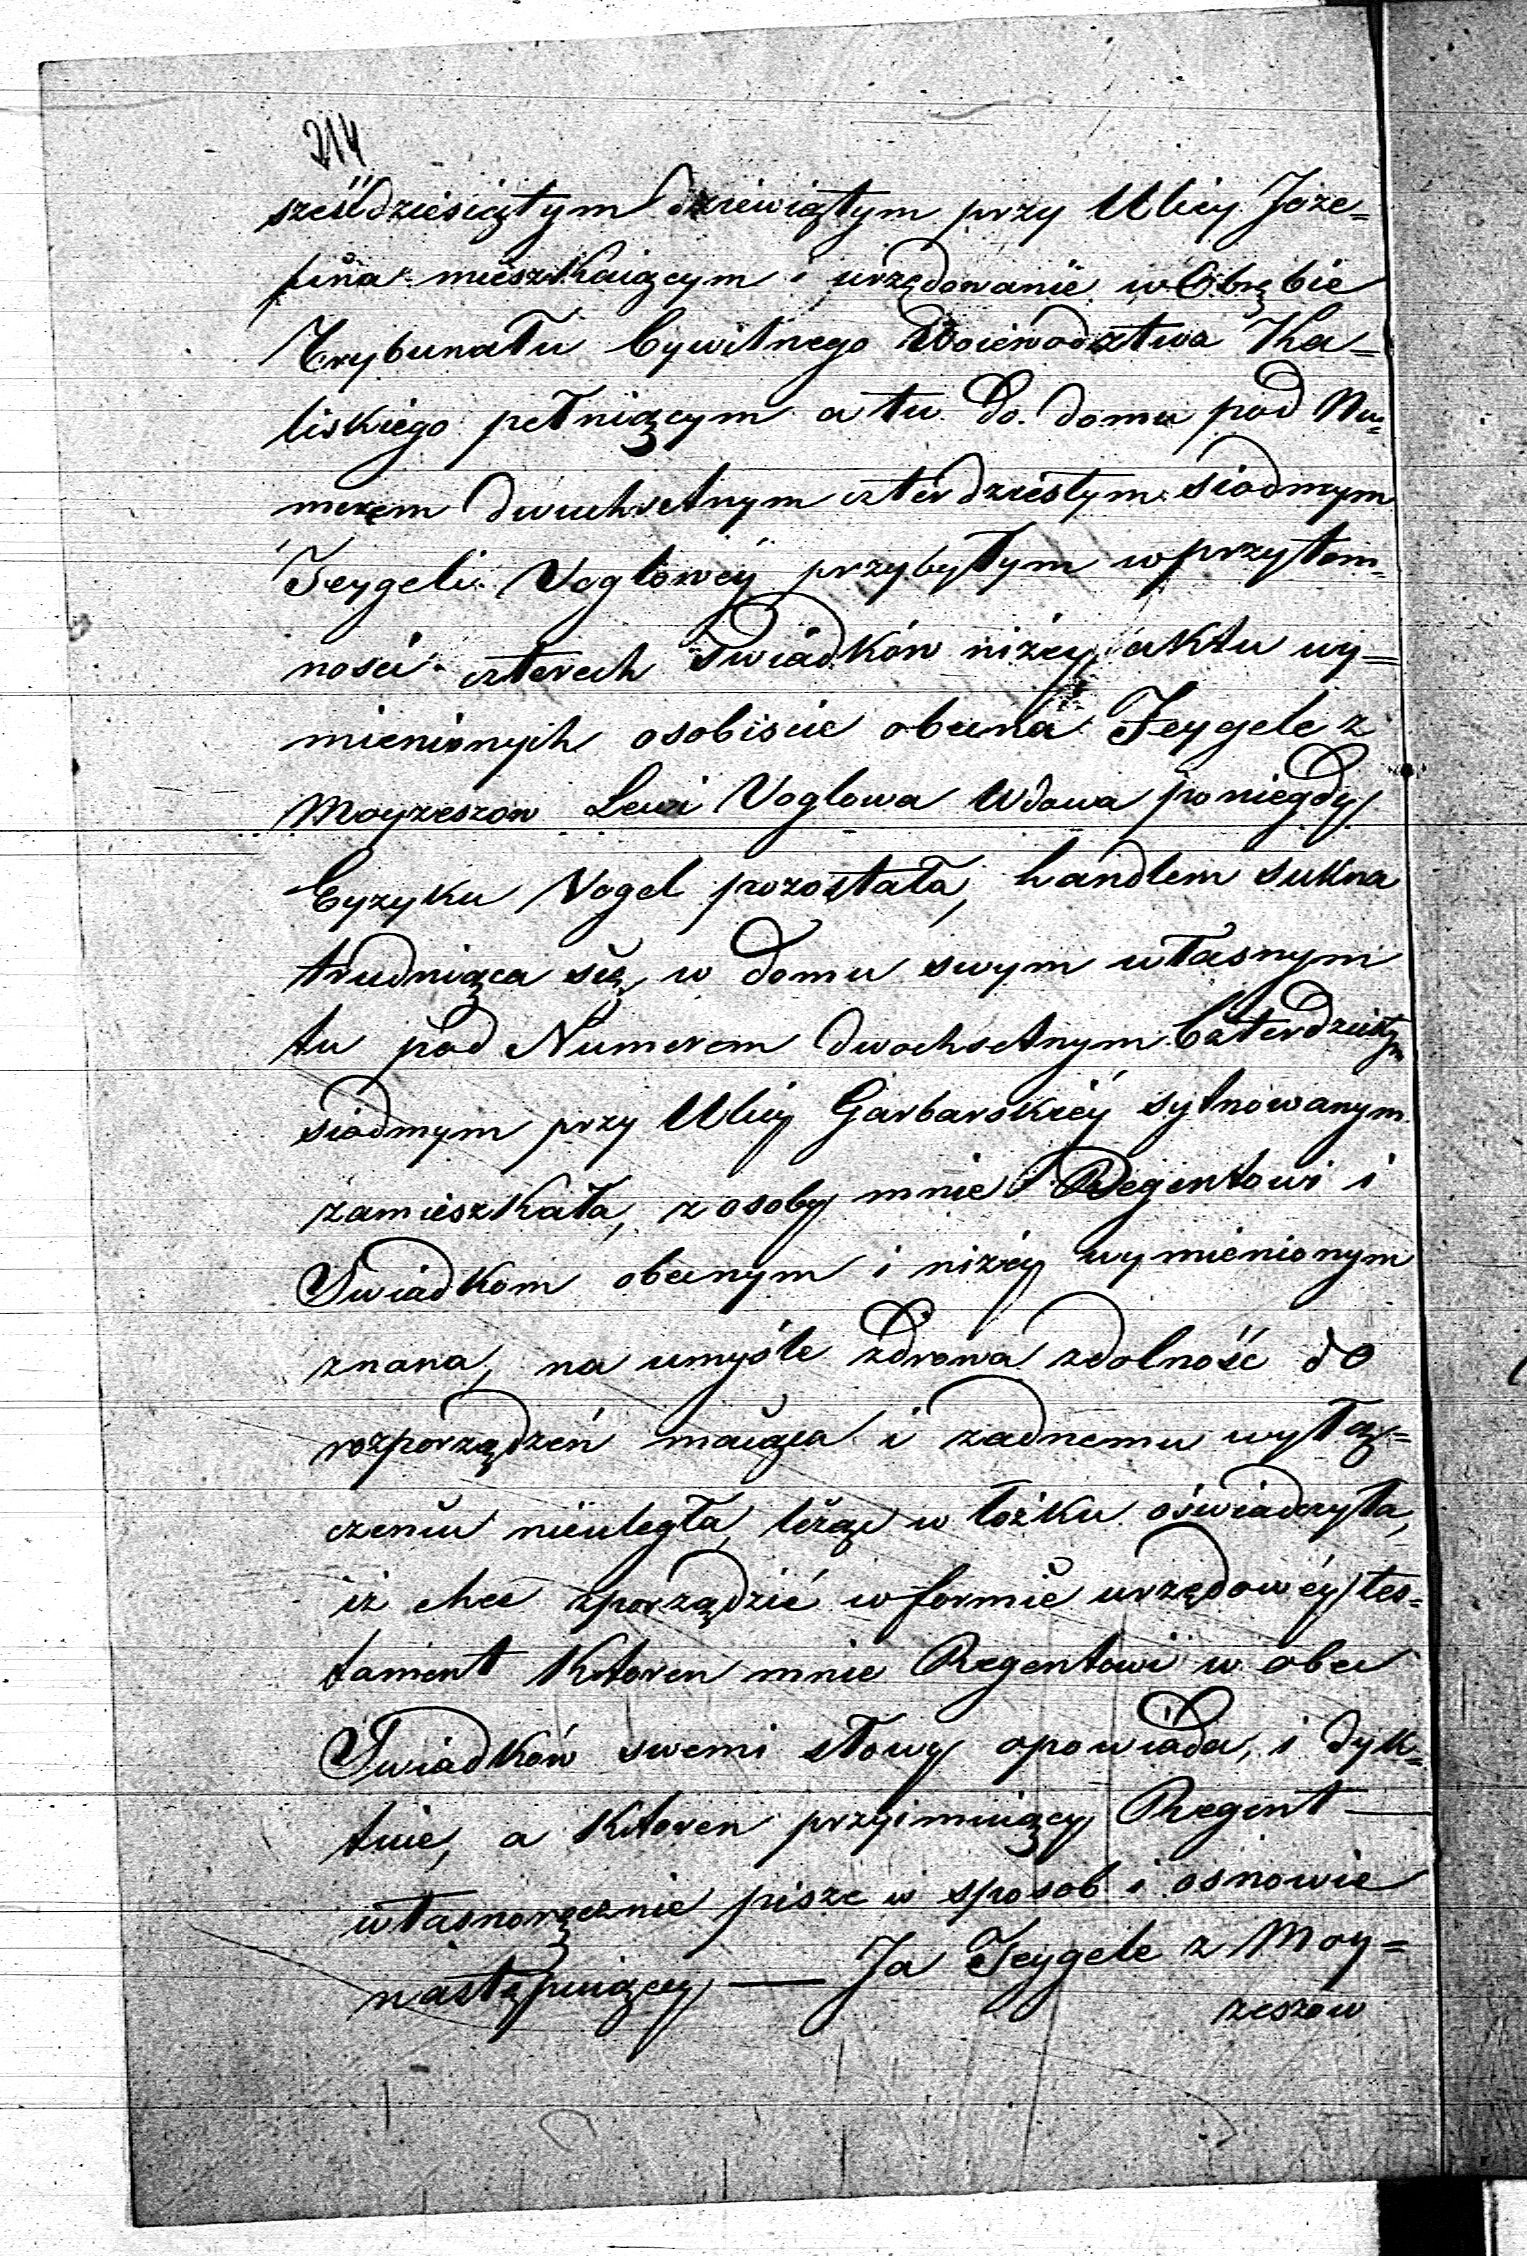 214
sześćdziesiątym dziewiątym przy Ulicy Jòze=
fina mieszkaiącym i urzędowanie w Obrębie
Trybunału Cywilnego Woiewodztwa Ka=
liskiego pełniącym a tu do domu pod Nu=
merem dwuchsetnym czterdziestym siodmym
Feygeli Voglowéy przybyłym w przytom=
ności czterech Swiadków niżey aktu wy=
mienionych osobiscie obecna Feygele z
Moyzeszow Lewi Voglowa Wdowa po niegdy
Eyzyku Vogel pozostała, handlem sukna
trudniąca się, w domu swym własnym
tu pod Numerem dwochsetnym Czterdziestym
siodmym przy Ulicy Garbarskiéy sytuowanym
zamieszkała, z osoby mnie Regentowi i
Swiadkom obecnym i niżéy wymienionym
znana, na umyśle zdrowa zdolność do
rozporządzeń maiąca i zadnemu wyłą=
czeniu nieuległa, leżąc w łożku oświadczyła,
iż chce sporządzić w formie urzędowéy tes=
tament ktoren mnie Regentowi w obec
Swiadków swemi słowy opowiada, i dyk=
tuie, a ktoren przyimuiący Regent —
własnoręcznie pisze w sposob i osnowie
następuiącey — Ja Feygele z Moy=
zeszow